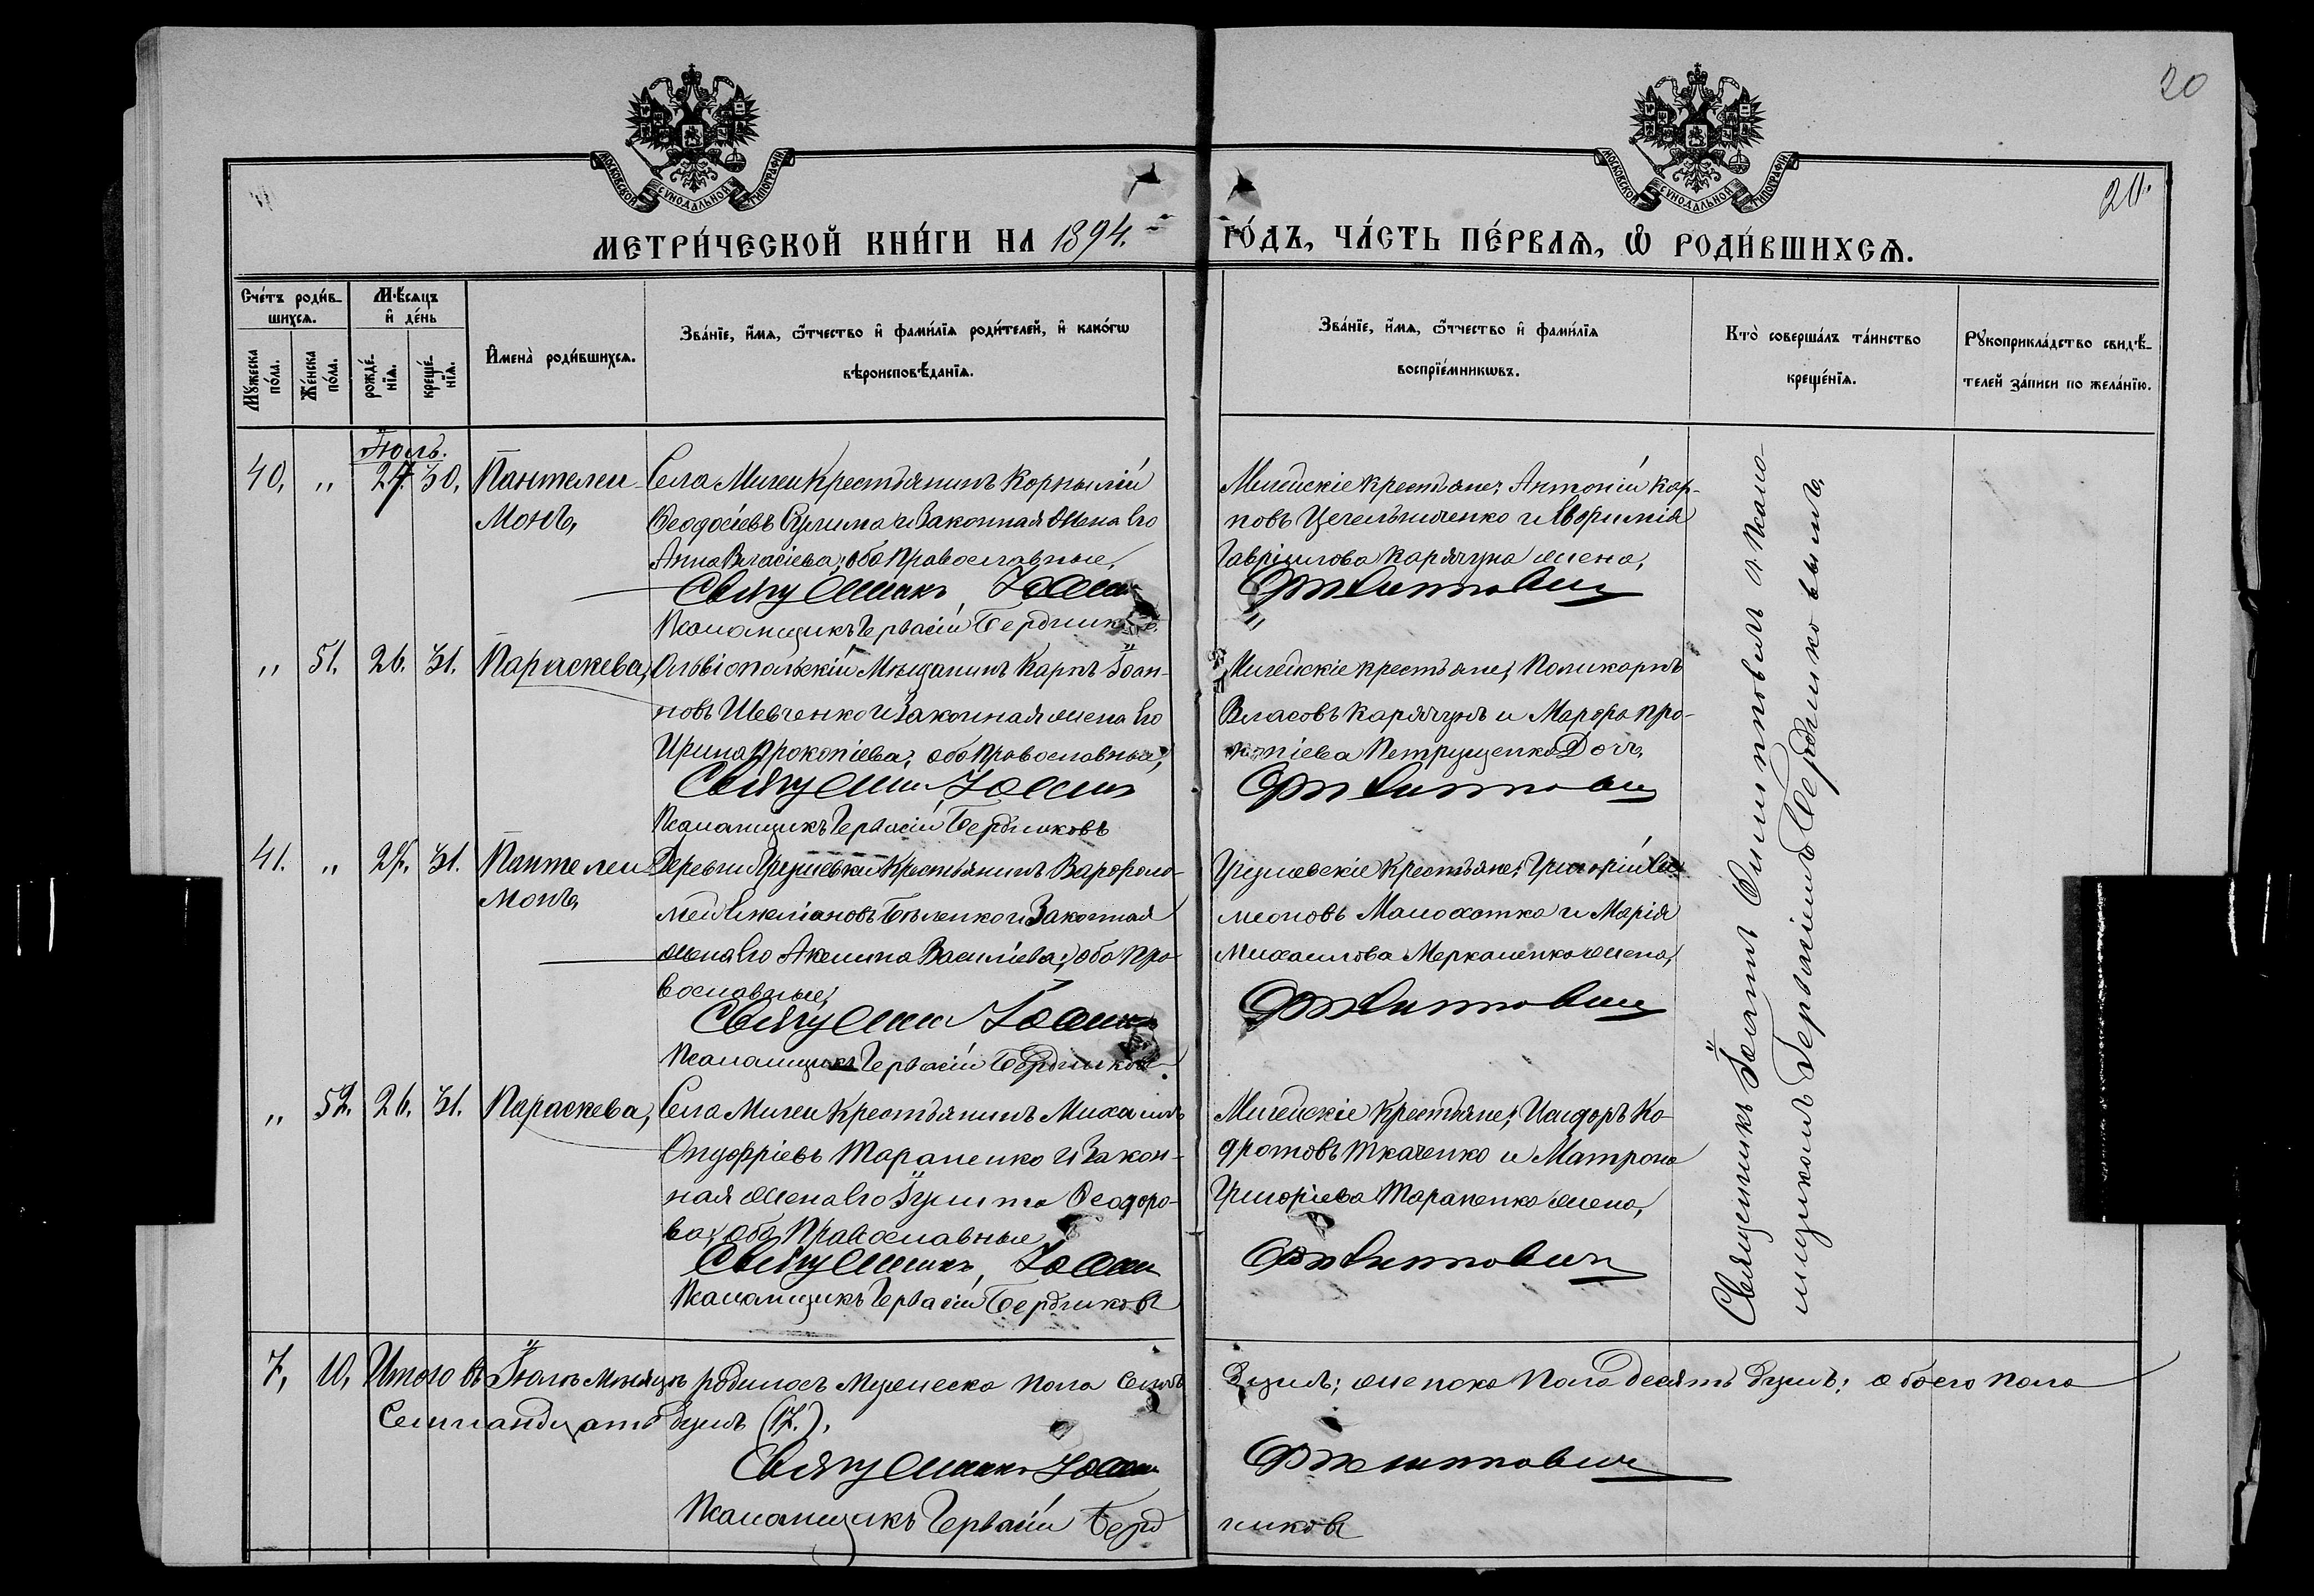 20
20.
МОСКОВСКОЙ СѴНОДАЛЬНОЙ ТИПОГРАФІИ
МОСКОВСКОЙ СѴНОДАЛЬНОЙ ТИПОГРАФІИ
МЕТРИ́ЧЕСКОЙ КНИ́ГИ НА 1894. ГО́ДЪ, ЧА́СТЬ ПЕ́РВАѦ, Ѿ РОДИ́ВШИХСѦ.
Сче́тъ роди́в-
шихсѧ.
Мꙋжеска по́ла.
Же́нска по́ла.
Мѣ́сѧцъ и҆ де́нь
рожде́-нїѧ.
креще́-нїѧ.
И҆мена̀ роди́вшихсѧ.
Зва́нїе, и҆́мѧ, ѻ҆́тчество и҆ фами́лїѧ роди́телей, и҆ како́гѡ
вѣроисповѣ́данїѧ.
Зва́нїе, и҆́мѧ, ѻ҆́тчество и҆ фами́лїѧ
воспрїе́мникѡвъ.
Кто̀ соверша́лъ та́инство
креще́нїѧ.
Рꙋкоприкла́дство свидѣ́-
телей за́писи по жела́нїю.
Іюль.
40. " 27. 30. Пантелеи-
монъ,
Села Мигеи Крестьянинъ Корнилій
Ѳеодосіевъ Сулима и Законная Жена Его
Анна Власіева, оба Православные,
Священникъ Іоаннъ
Псаломщикъ Гервасій Бердниковъ
Мигейскіе крестьяне, Антоній Кар-
повъ Цегельниченко и Евфимія
Гавріилова Карячуна жена,
" 51. 26. 31. Параскева,
Ольвіопольскій Мѣщанинъ Карпъ Іоан-
новъ Шевченко и Законная жена Его
Ирина Прокопіева, оба Православные,
Священникъ Іоаннъ
Псаломщикъ Гервасій Бердниковъ
Мигейскіе крестьяне, Поликарпъ
Власовъ Карячунъ и Марфа Про-
копіева Петрущенко Дочь,
41. " 27. 31. Пантелеи-
монъ,
Деревни Грушевки Крестьянинъ Варфоло-
мей Емеліановъ Бѣленко и Законная
жена Его Акилина Василіева, оба Пра-
вославные,
Священникъ Іоаннъ
Псаломщикъ Гервасій Бердниковъ
Грушевскіе Крестьяне, Григорій
Малохатка и Марія
Михаилова Меркаленко жена,
" 52. 26. 31. Параскева,
Села Мигеи Крестьянинъ Михаилъ
Онуфріевъ Тараненко и Закон-
ная жена Его Іулитта Ѳеодоро-
ва, оба Православные
Священникъ Іоаннъ
Псаломщикъ Гервасій Бердниковъ
Мигейскіе Крестьяне, Исидоръ Ко-
дратовъ Ткаченко и Матрона
Григоріева Тараненка жена,
Священникъ Іоаннъ съ псало-
мщикомъ Гервасіемъ Бердниковымъ.
7, 10, Итого въ Іюль мѣсяцѣ родилось Мужеска пола Семь душъ; женска пола десять душъ; обоего пола
Семнандцать душъ (17.).
Священникъ Іоаннъ
Псаломщикъ Гервасій Бердниковъ